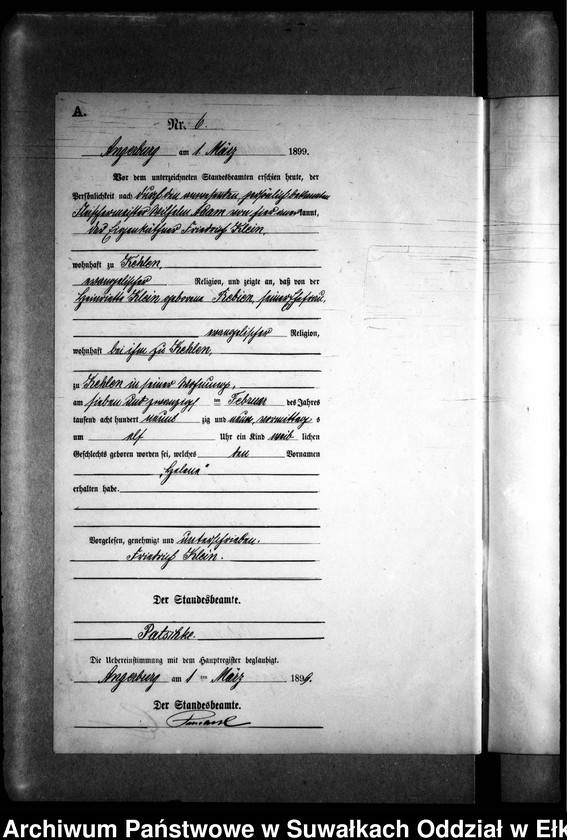 A.
Nr. 6.
Angerburg am 1. März 1899.
Vor dem unterzeichneten Standesbeamten erschien heute, der
Persönlichkeit nach durch den anwesenden persönlich bekannten
Fleischermeister Wilhelm Adam von hier anerkannt,
der Eigenkäthner Friedrich Klein,
wohnhaft zu Kehlen,
evangelischer Religion, und zeigte an, daß von der
Henriette Klein geborene Rebien, seiner Ehefrau,
evangelischer Religion,
wohnhaft bei ihm zu Kehlen,
zu Kehlen in seiner Wohnung,
am sieben und zwanzigsten Februar des Jahres
tausend acht hundert neunzig und neun, vormittags
um elf Uhr ein Kind weiblichen
Geschlechts geboren worden sei, welches den Vornamen
„Helene"
erhalten habe.
Vorgelesen, genehmigt und unterschrieben.
Friedrich Klein.
Der Standesbeamte.
Die Uebereinstimmung mit dem Hauptregister beglaubigt.
Angerburg am 1ten März 1899.
Der Standesbeamte.
Archiwum Państwowe w Suwałkach Oddział w Ełk